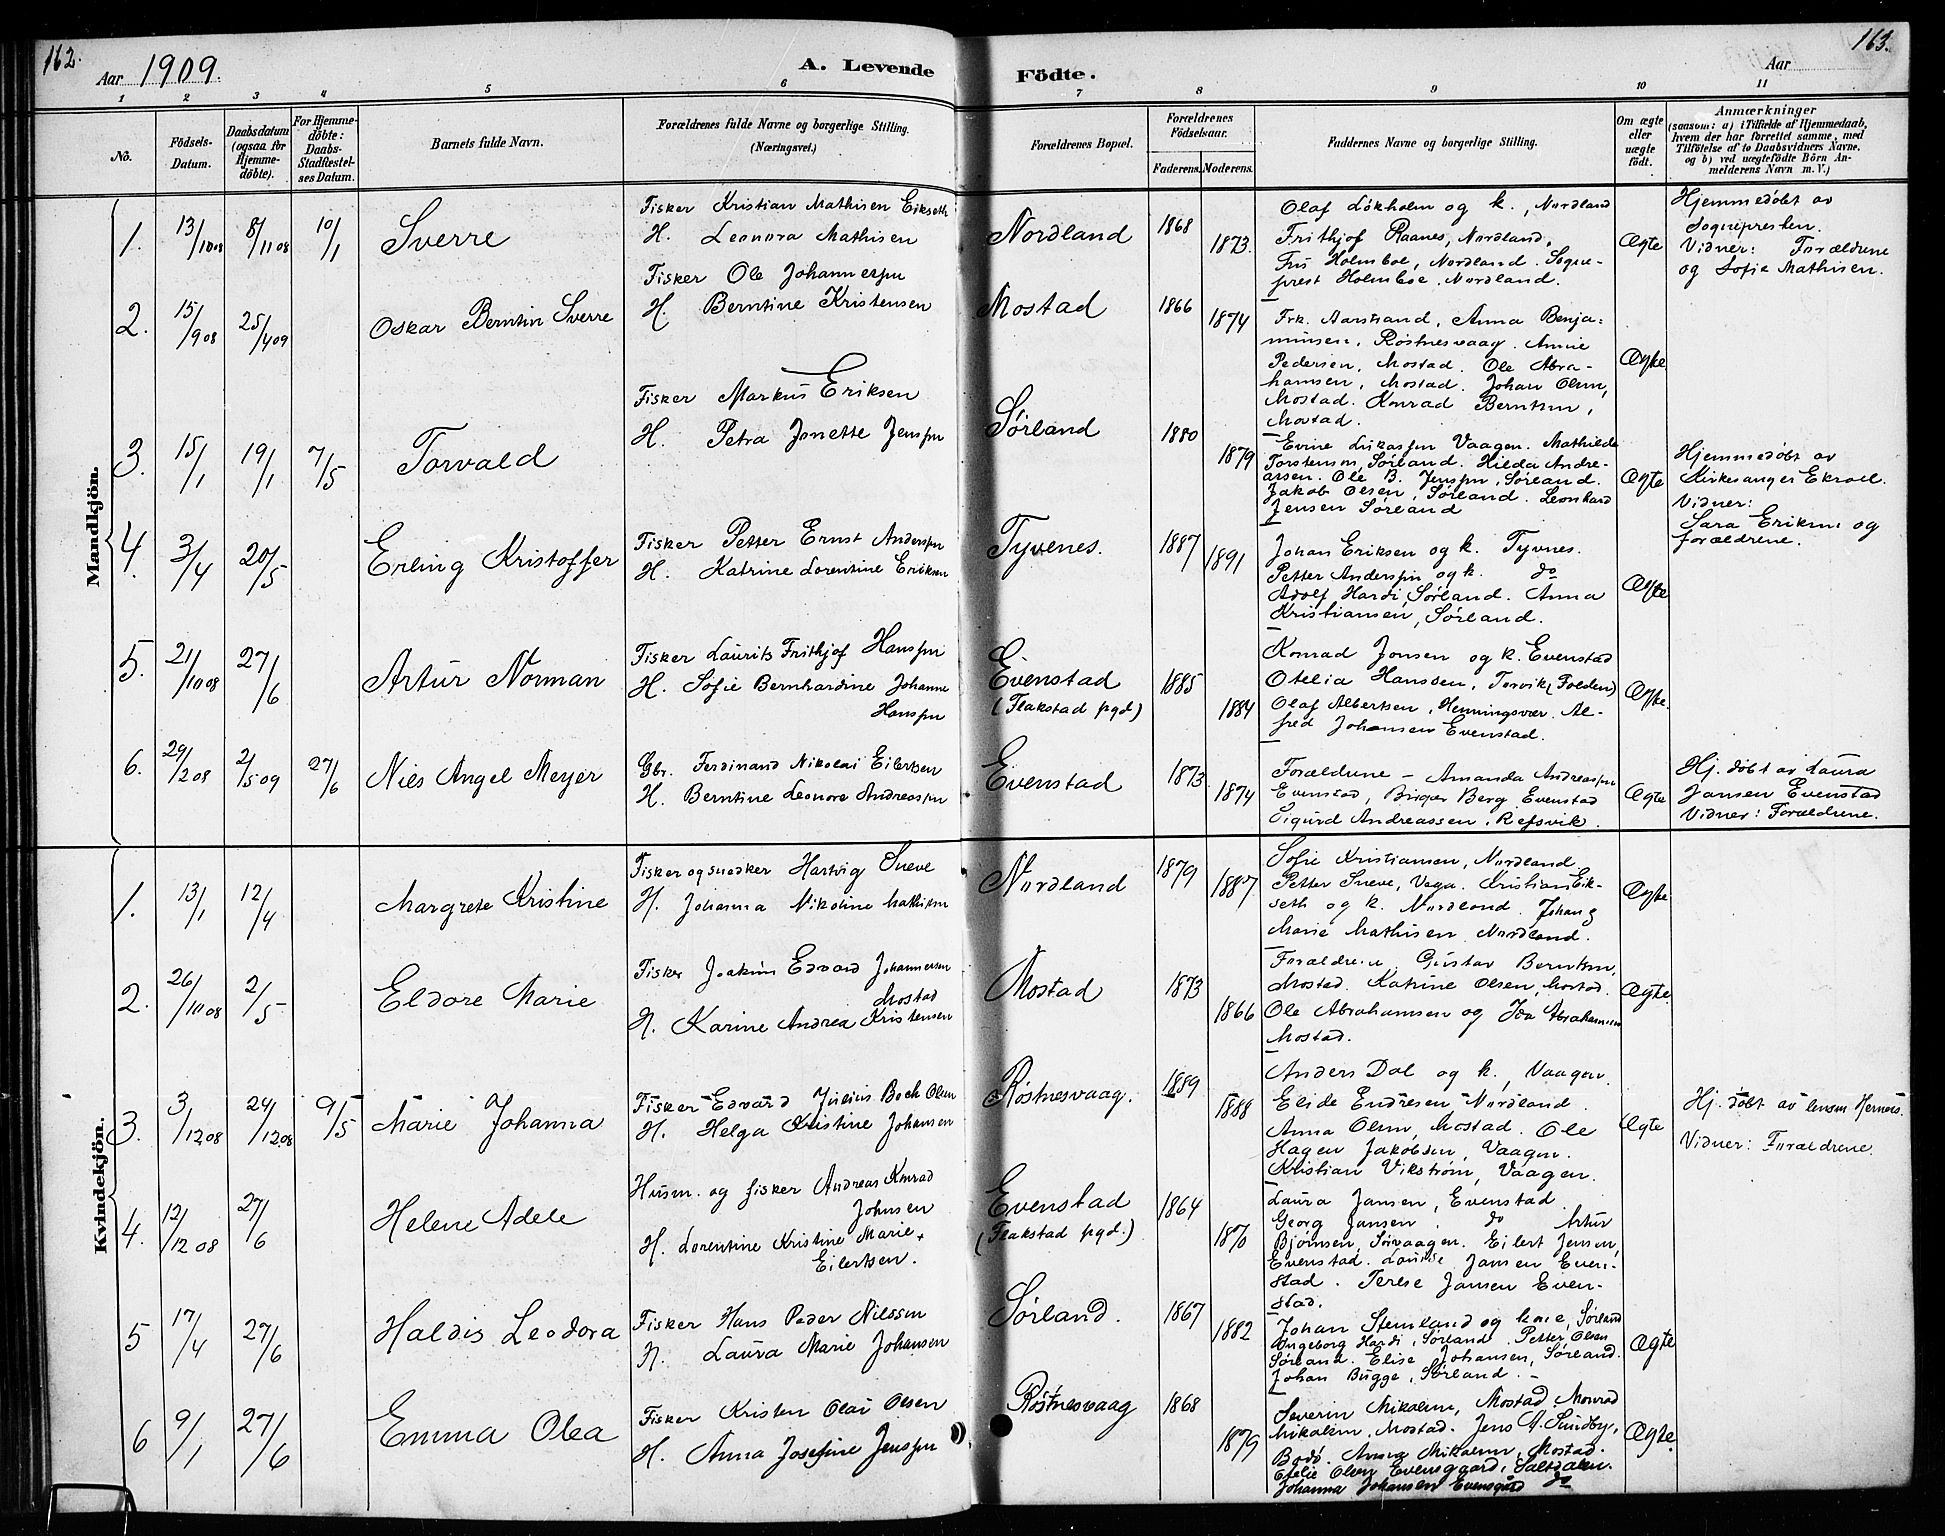 162.
163.
Aar 1909.
A. Levende Födte.
Aar
1 2 3 4 5 6 7 8 9 10 11
No.
Födsels-Datum.
Daabsdatum (ogsaa for Hjemme-döbte).
For Hjemme-döbte: Daabs-Stadfæstel-ses Datum.
Barnets fulde Navn.
Forældrenes fulde Navne og borgerlige Stilling. (Næringsvei.)
Forældrenes Bopæl.
Forældrenes Födselsaar.
Faderens. Moderens.
Faddernes Navne og borgerlige Stilling.
Om ægte eller uægte födt.
Anmærkninger
(saasom: a) i Tilfælde af Hjemmedaab,
hvem der har forrettet samme, med
Tilföielse af to Daabsvidners Navne.
og b) ved uægtefödte Börn An-
melderens Navn m. V.)
Mandkjön.
1. 13/10 08 8/11 08 10/1 Sverre
Fisker Kristian Mathisen Eikseth
H. Leonora Mathisen
Nordland 1868 1873
Olaf Løkholm og k., Nordland
Frithjof Raanes, Nordland,
Fru Holmboe, Nordland. Sogne-
prest Holmboe, Nordland.
Ægte
Hjemmedøbt av
Sognepresten.
Vidner: Forældrene
og Sofie Mathisen.
2. 15/9 08 25/4 09 Oskar Berntin Sverre
Fisker Ole Johannessen
H. Berntine Kristensen
Mostad 1866 1874
Frk. Aarstrand, Anna Benja-
minsen, Røstnesvaag. Annie
Pedersen, Mostad. Ole Abra-
hamsen, Mostad. Johan Olsen,
Mostad. Konrad Berntsen,
Mostad.
Ægte
3. 15/1 19/1 7/5 Torvald
Fisker Markus Eriksen
H. Petra Jonette Jenssen
Sørland 1880 1879
Evine Lukassen Vaagen. Mathilde
Torstensen, Sørland. Hilda Andre-
assen. Ole B. Jenssen, Sørland.
Jakob Olsen, Sørland. Leonhard
Jensen Sørland
Ægte
Hjemmedøbt av
Kirkesanger Ekroll.
Vidner:
Sara Eriksen og
forældrene.
4. 3/4 20/5 Erling Kristoffer
Fisker Petter Ernst Anderssen
H. Katrine Lorentine Eriksen
Tyvenes. 1887 1891
Johan Eriksen og k. Tyvnes.
Petter Anderssen og k. do
Adolf Hardi, Sørland. Anna
Kristiansen, Sørland.
Ægte
5. 21/10 08 27/6 Artur Norman
Fisker Laurits Frithjof Hanssen
H. Sofie Bernhardine Johanne
Hanssen
Evenstad
(Flakstad pgd)
1885 1884
Konrad Jonsen og k. Evenstad
Otelia Hanssen, Torvik (Folden)
Olaf Albertsen, Henningsvær. Al-
fred Johansen Evenstad.
Ægte.
6. 29/2 08 2/5 09 27/6 Niels Angel Meyer
Gbr. Ferdinand Nikolai Eilertsen
H. Berntine Leonore Andreassen
Evenstad 1873 1874
Forældrene – Amanda Andreassen
Evenstad, Birger Berg Evenstad
Sigurd Andreassen, Refsvik.
Ægte
Hj. døbt av Laura
Jansen Evenstad
Vidner: Forældrene.
Kvindekjön.
1. 13/1 12/4 Margrete Kristine
Fisker og snedker Hartvig Sneve
H. Johanna Nikoline Mathisen
Nordland 1879 1887
Sofie Kristiansen, Nordland
Petter Sneve, Vega. Kristian Eik-
seth og k. Nordland. Johan &
Marie Mathisen Nordland.
Ægte
2. 26/10 08 2/5 Eldore Marie
Fisker Joakim Edvard Johannessen
Mostad
H. Karine Andrea Kristensen
Mostad 1873 1866
Forældrene, Gustav Berntsen,
Mostad. Katrine Olsen, Mostad.
Ole Abrahamsen og Ida Abrahamsen
Mostad.
Ægte
3. 3/12 08 24/12 08 9/5 Marie Johanna
Fisker Edvard Julius Boch Olsen
H. Helga Kristine Johansen
Røstnesvaag. 1889 1888
Anders Dal og k., Vaagen.
Elide Endresen Nordland.
Anna Olsen, Mostad. Ole
Hagen Jakobsen, Vaagen.
Kristian Vikstrøm, Vaagen.
Ægte
Hj. døbt av lensm Hernes.
Vidner: Forældrene.
4. 12/12 08 27/6 Helene Adele
Husm. og fisker Andreas Konrad
Johnsen
H. Lorentine Kristine Marie
Eilertsen.
Evenstad
(Flakstad pgd.)
1864 1870
Laura Jansen, Evenstad
Georg Jansen, do Artur
Bjørnsen, Sørvaagen. Eilert Jensen,
Evenstad. Louise Jansen Even-
stad. Terese Jansen Even-
stad.
5 17/4 27/6 Haldis Leodora
Fisker Hans Peder Nilssen
H. Laura Marie Johansen
Sørland. 1867 1882
Johan Stemland og kone, Sørland
Ingeborg Hardi, Sørland. Petter Olsen
Sørland. Elise Johansen, Sørland.
Johan Bugge, Sørland.
Ægte
6 9/1 27/6 Emma Olea
Fisker Kristen Olai Olsen
H. Anna Josefine Jenssen
Røstnesvaag 1868 1879
Severin Mikalsen, Mostad Monrad
Mikalsen, Mostad. Jens A. Sundby,
Bodø. Anna Mikalsen, Mostad.
Ofelie Olsen Evensgaard, Saltdalen.
Johanna Johansen Evensgård do
Ægte.